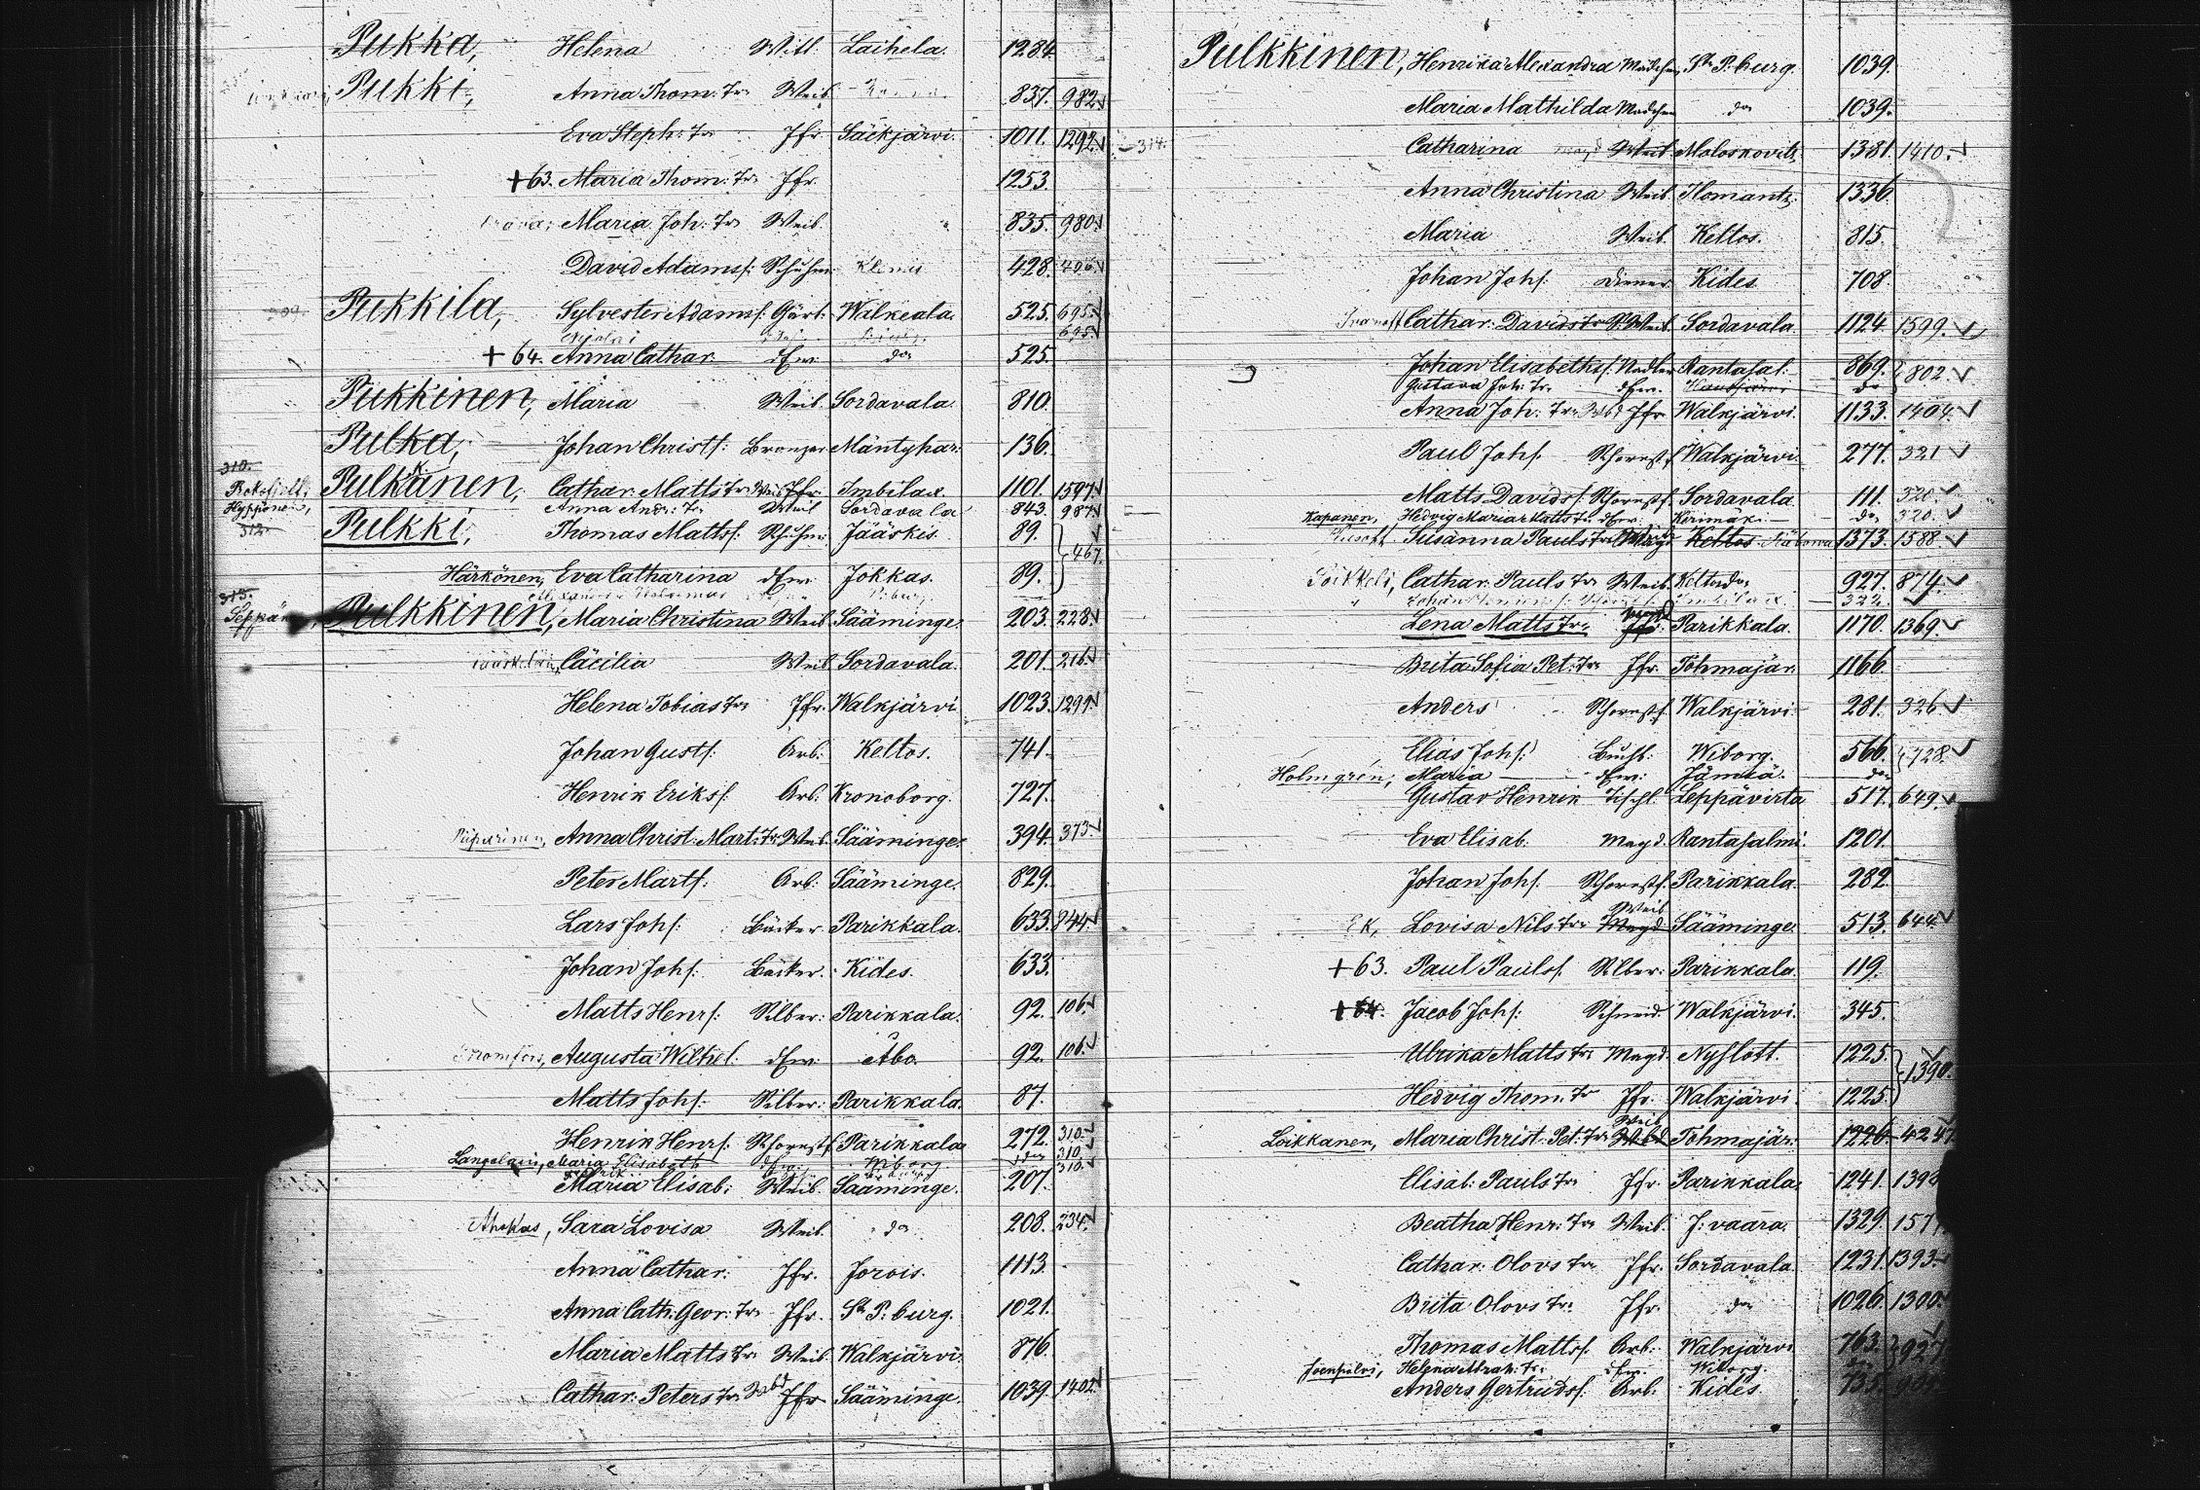 Pukka, Helena Witt. Laihela. 1284.
Pukki, Anna Thom: Tr. Weib 837. 982
Eva Steph: Tr Jfr. Säckjärvi. 1011. 1292
+63. Maria Thom: Tr. Jfr. 1253.
Maria Joh: Tr Weib. 835. 980
David Adamsf: Schuhm: 428.
Pukkila, Sylvester Adamsf: Gärt: Walkeala 525. 695
+ 64. Anna Cathar. dEw. do 525.
Pukkinen, Maria Weib. Sordavala. 810.
Pulka, Johan Christf: Bronzer Mäntyhar: 136.
310.
Pulkänen, Cathar: Matts Tr. Jfr. Imbilax. 1101. 1597
Hyppönen, Anna Andr: Tr. Weib Sordavala 843. 987
312.
Pulkki, Thomas Mattsf: Schuhm: Jääskis. 89. 467.
Härkönen, Eva Catharina dEw. Jokkas. 89.
313.
Pulkkinen, Maria Christina Weib Sääminge 203. 228
Cäcilia Weib Sordavala. 201. 216
Helena Tobias Tr. Jfr. Walkjärvi 1023. 1299
Johan Gustf: Arb: Keltos. 741.
Henrik Eriksf: Arb: Kronoborg. 727.
Anna Christ: Mart: Tr. Weib. Sääminge. 394. 373
Peter Martf: Arb: Sääminge. 829.
Lars Johf: Bäcker Parikkala. 633. 844
Johan Johf: Bäcker. Kides. 633.
Matts Henrf: Silber: Parikkala. 92. 106
Augusta Wilhel. dEw: Åbo 92. 106
Matts Johf: Silber: Parikkala. 87.
Henrik Henrf: Schornstf. Parikkala 272. 310
Maria Elisabeth dEw. Wiborg do 310.
Maria Elisab: Weib. Sääminge. 207.
Ahokas, Sara Lovisa Weib. do 208. 234
Anna Cathar: Jfr. Jorois. 1113.
Anna Cath: Geor: Tr. Jfr. St P: burg. 1021.
Maria Matts Tr. Weib. Walkjärvi. 876.
Cathar: Peters Tr. Jfr Sääminge. 1039. 1402
Pulkkinen, Henrika Alexandra Mädchen St. P. burg. 1039.
Maria Mathilda Mädchen do 1039.
314. Catharina Magd Weib. Moloskovitz 1381. 1410.
Anna Christina Weib. Ilomantz. 1336.
Maria Weib. Keltos. 815.
Johan Johf. Diener Kides 708.
Cathar: Davids Tr Weib. Sordavala. 1124. 1599.
Johan Elisabethsf. Nadler Rantasal: 869. 802.
Gustava Joh: Tr. dEw. do
Anna Joh: Tr. Jfr. Walkjärvi. 1133. 1404.
Paul Johf. Schornstf. Walkjärvi 277. 321
Matts Davidsf. Schornstf. Sordavala 111. 320.
Kapanen, Hedvig Maria Matts Tr. dEw. Kerimäki do 320.
Susanna Pauls Tr. Magd Keltos 1373. 1588
Cathar: Pauls Tr. Weib. 927. 874.
322.
Lena Matts Tr. Magd Jfr. Parikkala. 1170. 1369.
Brita Sofia Pet: Tr. Jfr. Tohmajär: 1166.
Anders Schornstf. Walkjärvi 281. 326.
Elias Johf: Buchb: Wiborg. 566. 728.
Holmgrén, Maria dEw: do
Gustav Henrik Tischl. Leppävirta 517. 649.
Eva Elisab. Magd. Rantasalmi. 1201.
Johan Johf. Schornstf. Parikkala. 282.
Ek, Lovisa Nils Tr. Weib Magd Sääminge 513. 644
+ 63. Paul Paulsf. Silber: Parikkala. 119.
+ 64. Jacob Johf: Schneid. Walkjärvi. 345.
Ulrika Matts Tr. Magd. Nyslott. 1225. 1390.
Hedvig Thom: Tr Jfr. Walkjärvi. 1225.
Loikkanen, Maria Christ: Pet: Tr. Weib Tohmajär: 1226.
Elisab: Pauls Tr. Jfr. Parikkala. 1241.
Beatha Henr: Tr. Weib. J: vaara. 1329.
Cathar: Olovs Tr. Jfr. Sordavala. 1231. 1393.
Brita Olovs Tr. Jfr. do 1026. 1300
Thomas Mattsf. Arb: Walkjärvi 763.
Helena Abrah: Tr. dEw. Wiborg.
Anders Gertrudsf. Arb. Kides 735.